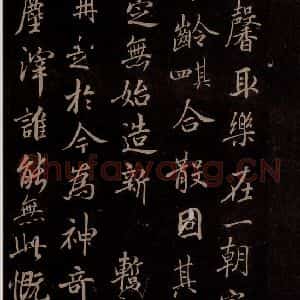 馨取樂在一朝
齡其四合散固其
定無始造新暫
再起於今為神奇
塵滓誰能無此慨
Shufawang.CN